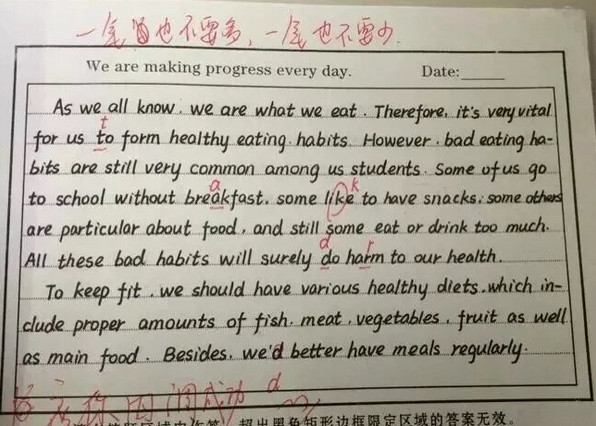 一尾也不要多，一尾也不要少.
We are making progress every day. Date:
As we all know, we are what we eat. Therefore, it's very vital
t
for us to form healthy eating habits. However, bad eating ha-
bits are still very common among us students. Some of us go
a k
to school without breakfast, some like to have snacks, some others
are particular about food, and still some eat or drink too much.
d r
All these bad habits will surely do harm to our health.
To keep fit, we should have various healthy diets, which in-
clude proper amounts of fish, meat, vegetables, fruit as well
as main food. Besides, we'd better have meals regularly.
d
成功
超出黑色矩形边框限定区域的答案无效。